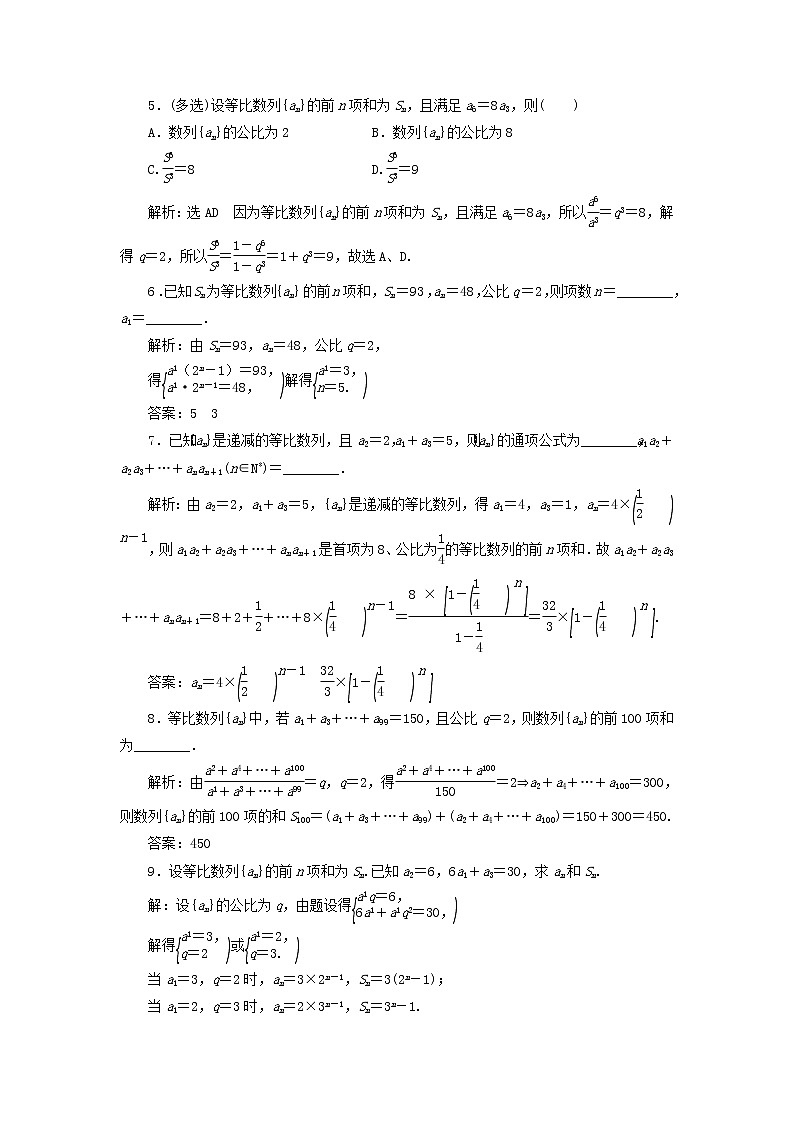 5．(多选)设等比数列{aₙ}的前 n 项和为 Sₙ，且满足 a₆＝8a₃，则(　　)
A．数列{aₙ}的公比为 2　　B．数列{aₙ}的公比为 8
C.S6/S3＝8　　D.S6/S3＝9
解析：选 AD　因为等比数列{aₙ}的前 n 项和为 Sₙ，且满足 a₆＝8a₃，所以a6/a3＝q³＝8，解
得 q＝2，所以S6/S3＝(1－q⁶)/(1－q³)＝1＋q³＝9，故选 A、D.
6．已知 Sₙ为等比数列{aₙ}的前 n 项和，Sₙ＝93，aₙ＝48，公比 q＝2，则项数 n＝________，
a₁＝________．
解析：由 Sₙ＝93，aₙ＝48，公比 q＝2，
得{a1（2ⁿ－1）＝93，a1·2ⁿ⁻¹＝48，)解得{a1＝3，n＝5.)
答案：5　3
7．已知{aₙ}是递减的等比数列，且 a₂＝2，a₁＋a₃＝5，则{aₙ}的通项公式为________；a₁a₂＋
a₂a₃＋…＋aₙaₙ₊₁(n∈N*)＝________．
解析：由 a₂＝2，a₁＋a₃＝5，{aₙ}是递减的等比数列，得 a₁＝4，a₃＝1，aₙ＝4×(1/2)
n－1，则 a₁a₂＋a₂a₃＋…＋aₙaₙ₊₁是首项为 8、公比为1/4的等比数列的前 n 项和．故 a₁a₂＋a₂a₃
＋…＋aₙaₙ₊₁＝8＋2＋1/2＋…＋8×(1/4)ⁿ⁻¹＝8×[1－(1/4)ⁿ]/(1－1/4)＝32/3×[1－(1/4)ⁿ].
答案：aₙ＝4×(1/2)ⁿ⁻¹　32/3×[1－(1/4)ⁿ]
8．等比数列{aₙ}中，若 a₁＋a₃＋…＋a₉₉＝150，且公比 q＝2，则数列{aₙ}的前 100 项和
为________．
解析：由(a2＋a4＋…＋a100)/(a1＋a3＋…＋a99)＝q，q＝2，得(a2＋a4＋…＋a100)/150＝2⇒a₂＋a₄＋…＋a₁₀₀＝300，
则数列{aₙ}的前 100 项的和 S₁₀₀＝(a₁＋a₃＋…＋a₉₉)＋(a₂＋a₄＋…＋a₁₀₀)＝150＋300＝450.
答案：450
9．设等比数列{aₙ}的前 n 项和为 Sₙ.已知 a₂＝6，6a₁＋a₃＝30，求 aₙ和 Sₙ.
解：设{aₙ}的公比为 q，由题设得{a1q＝6，6a1＋a1q²＝30，)
解得{a1＝3，q＝2)或{a1＝2，q＝3.)
当 a₁＝3，q＝2 时，aₙ＝3×2ⁿ⁻¹，Sₙ＝3(2ⁿ－1)；
当 a₁＝2，q＝3 时，aₙ＝2×3ⁿ⁻¹，Sₙ＝3ⁿ－1.